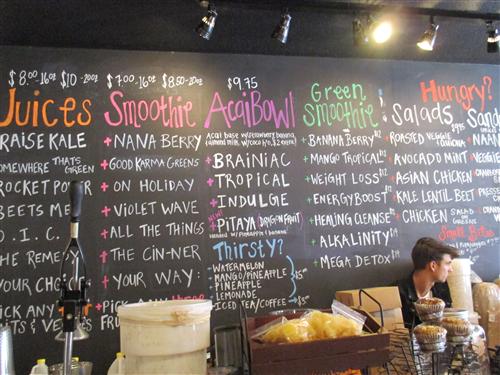 $8.00-16oz $10-20oz
Juices
RAISE KALE
OMEWHERE THATS
GREEN
ROCKET POWER
BEETS ME
O.I.C.
THE REMEDY
YOUR CHOICE
PICK ANY
FRUITS & VEG
$7.00-16oz $8.50-20oz
Smoothie
+ NANA BERRY
+ GOOD KARMA GREENS
+ ON HOLIDAY
+ VIOLET WAVE
+ ALL THE THINGS
+ THE CIN-NER
+ YOUR WAY:
PICK ANY THREE
FRUITS
$9.75
Acai Bowl
acai base w/strawberry, banana
+ BRAINIAC
+ TROPICAL
+ INDULGE
NEW!
+ PiTAYA (DRAGONFRUIT)
w/ pineapple & banana
Thirsty?
WATERMELON
MANGO/PINEAPPLE
PINEAPPLE
LEMONADE
ICED TEA/COFFEE
$5
Green
Smoothie
+ BANANA BERRY
+ MANGO TROPICAL
+ WEIGHT LOSS
+ ENERGY BOOST
+ HEALING CLEANSE
+ ALKALINITY
+ MEGA DETOX
Hungry?
Salads
$9.95
ROASTED VEGGIE
QUINOA
AVOCADO MINT
ASIAN CHICKEN
KALE LENTIL BEET
CHICKEN SALAD
GREENS
Small Bites
Sand
NAAN
VEGGIE